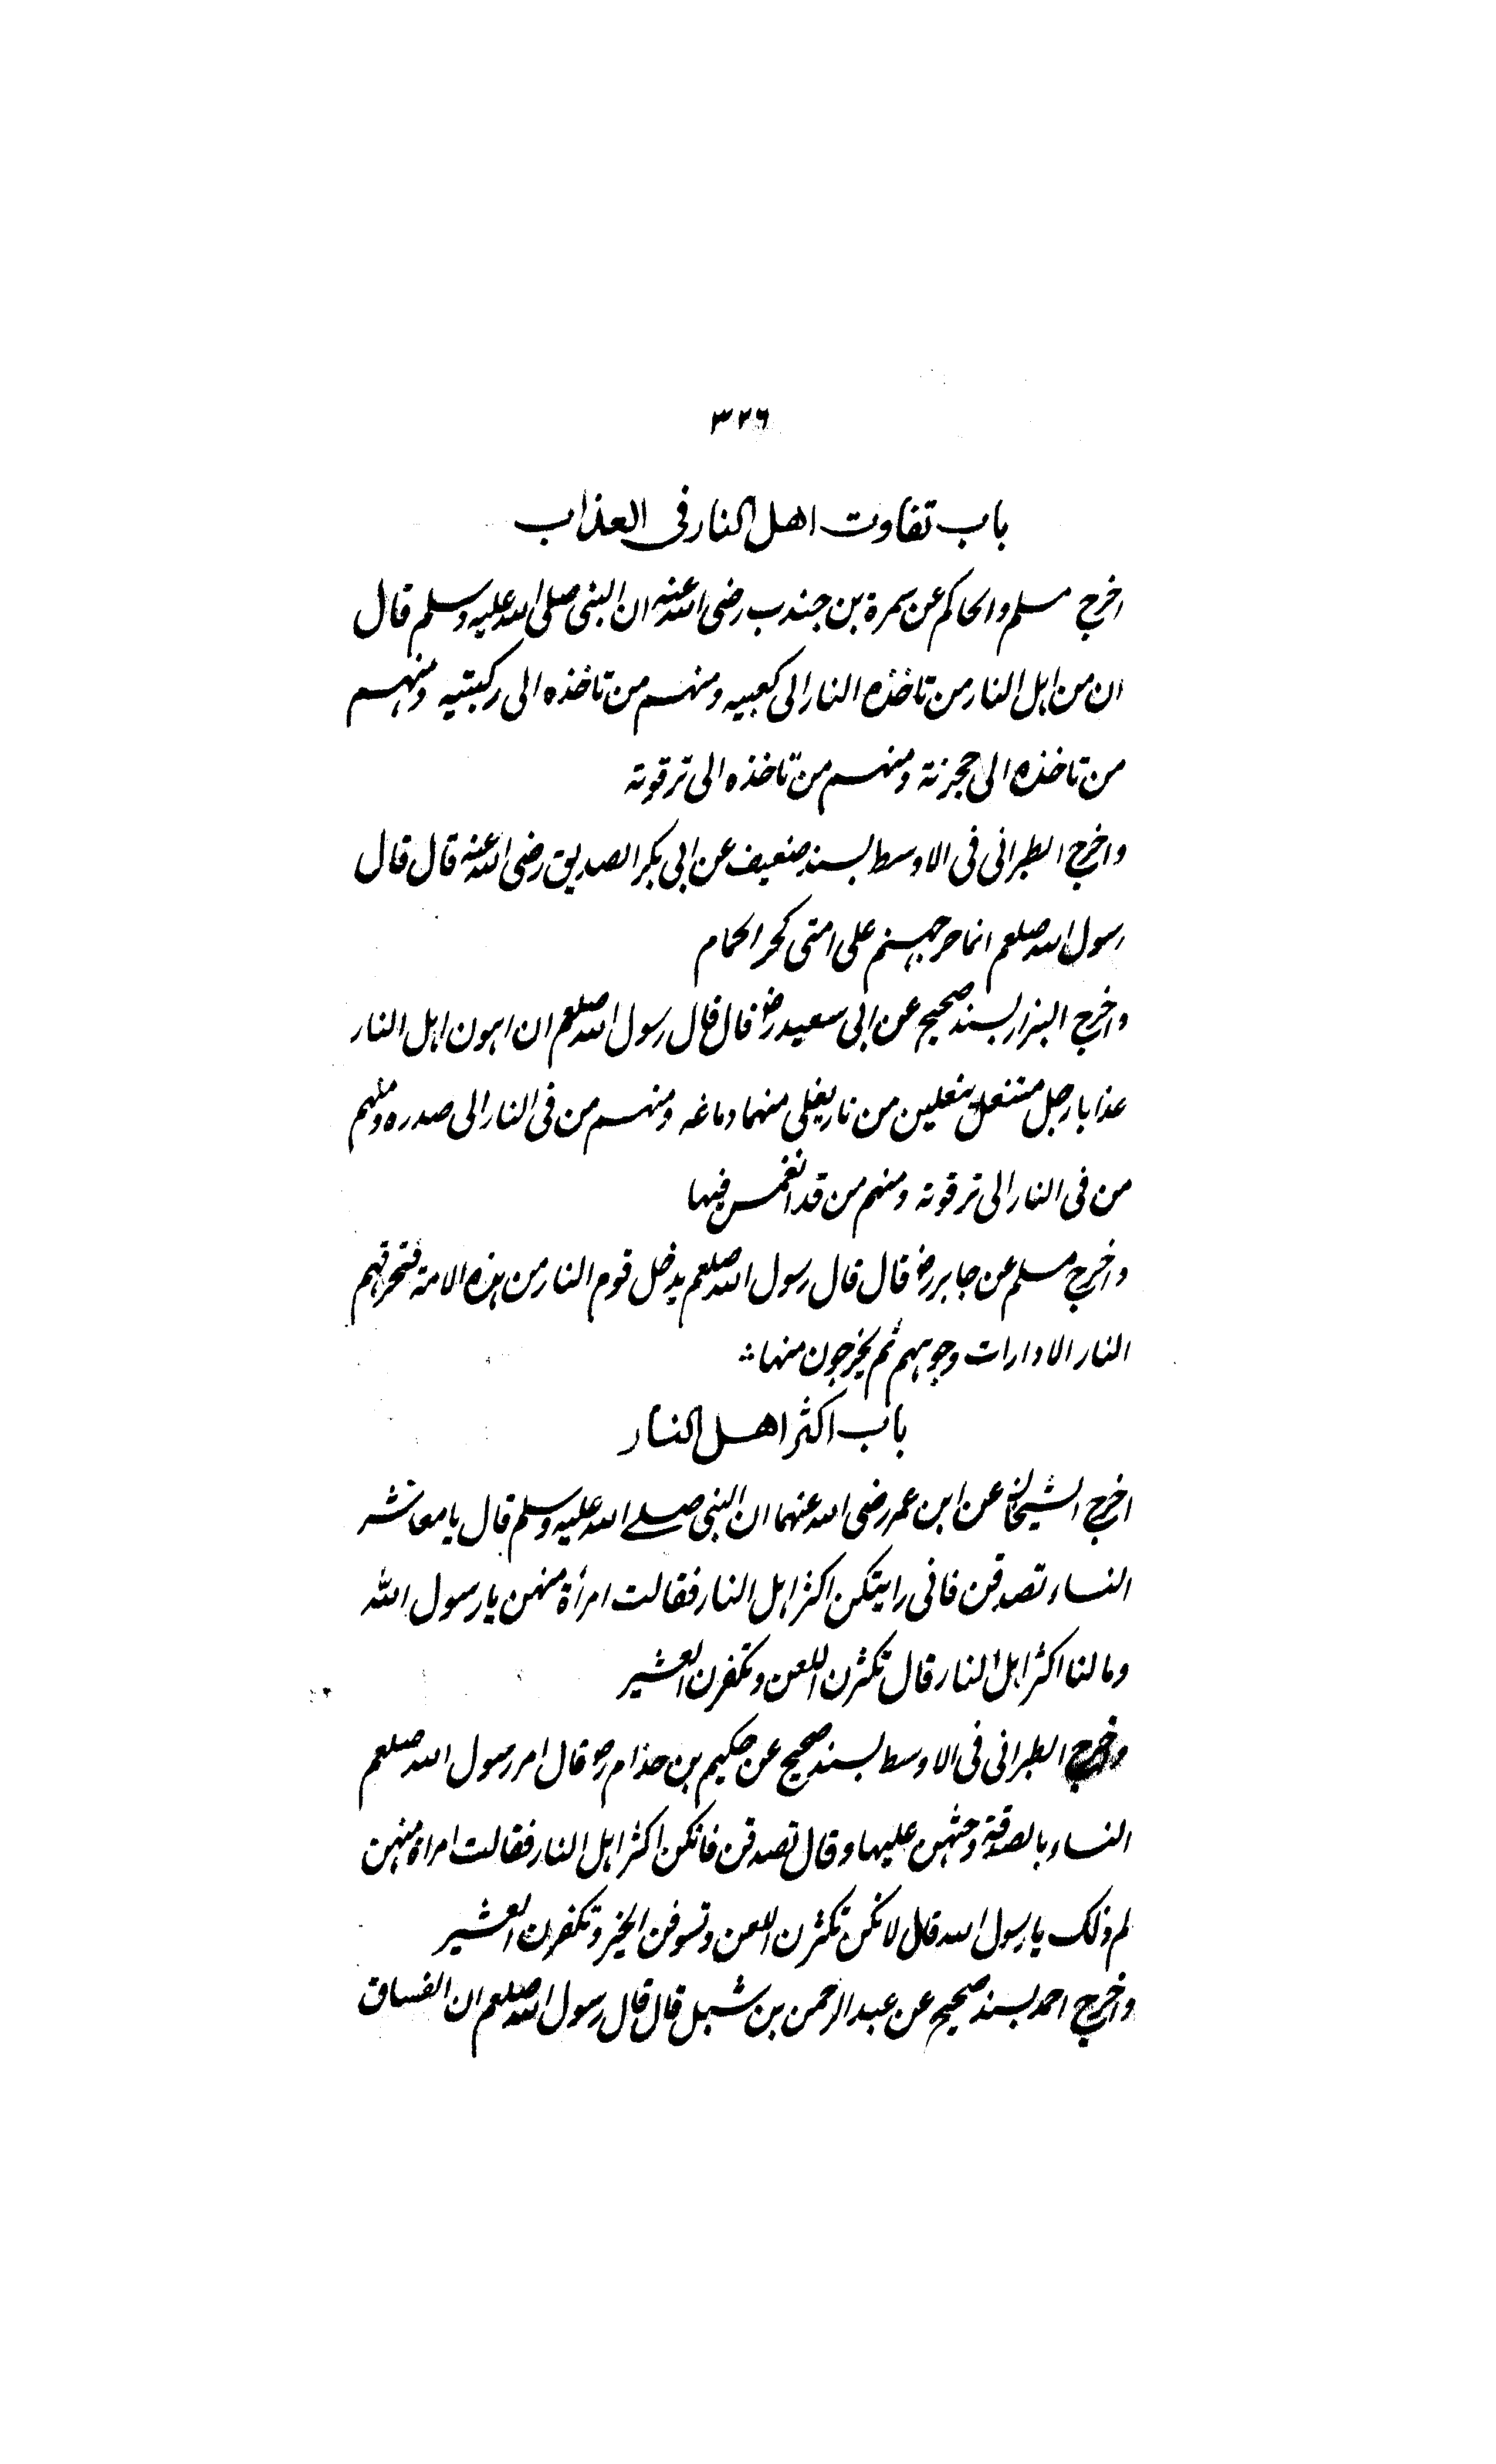 ٣٢٦
باب تفاوت اهل النار فى العذاب
اخرج مسلم والحاكم عن سمرة بن جندب رضى الله عنه ان النبى صلى الله عليه وسلم قال
ان من اهل النار من تاخذه النار الى كعبيه ومنهم من تاخذه الى ركبتيه ومنهم
من تاخذه الى حجزته ومنهم من تاخذه الى ترقوته
واخرج الطبرانى فى الاوسط بسند ضعيف عن ابى بكر الصديق رضى الله عنه قال قال
رسول الله صلعم انما حر جهنم على امتى كحر الحمام
واخرج البزار بسند صحيح عن ابى سعيد رض قال قال رسول الله صلعم ان اهون اهل النار
عذابا رجل منتعل بنعلين من نار يغلى منهما دماغه ومنهم من فى النار الى صدره ومنهم
من فى النار الى ترقوته ومنهم من قد انغمس فيها
واخرج مسلم عن جابر رض قال قال رسول الله صلعم يدخل قوم النار من هذه الامة فتحرقهم
النار الا دارات وجوههم ثم يخرجون منها
باب اكثر اهل النار
اخرج الشيخان عن ابن عمر رضى الله عنهما ان النبى صلے الله عليه وسلم قال يا معاشر
النساء تصدقن فانى رايتكن اكثر اهل النار فقالت امرأة منهن يا رسول الله
وما لنا اكثر اهل النار قال تكثرن اللعن وتكفرن العشير
واخرج الطبرانى فى الاوسط بسند صحيح عن حكيم بن حذام رض قال امر رسول الله صلعم
النساء بالصدقة وحثهن عليها وقال تصدقن فانكن اكثر اهل النار فقالت امراة منهن
لم ذلك يا رسول الله قال لانكن تكثرن اللعن وتسوفن الخير وتكفرن العشير
واخرج احمد بسند صحيح عن عبد الرحمن بن شبل قال قال رسول الله صلعم ان الفساق